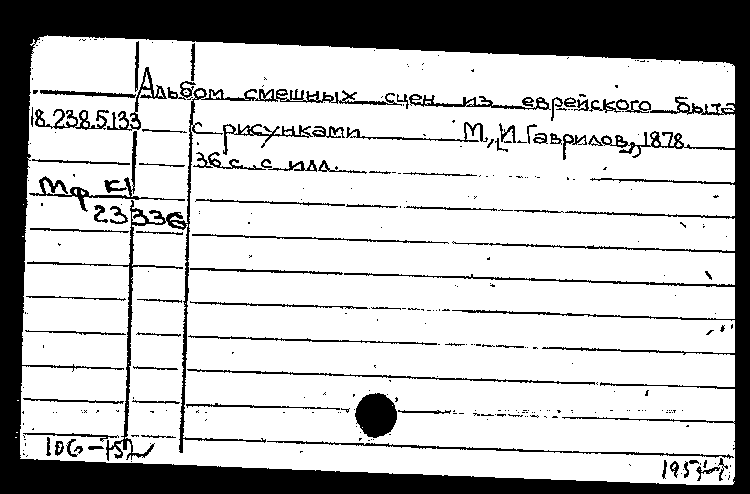 Альбом смешных сцен из еврейского быта
18.238.5.133 с рисунками М., [И. Гаврилов], 1878.
36 с. с илл.
Мф К1
23336
106-75